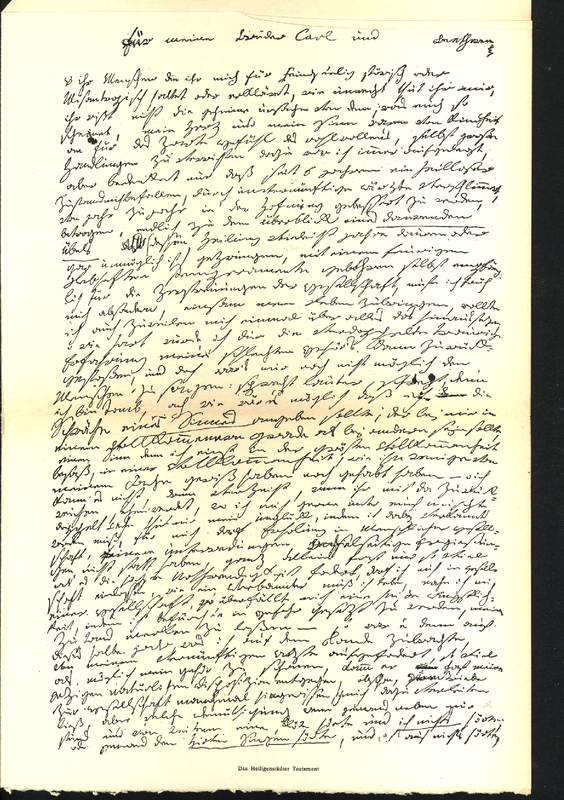 für meine Brüder Carl und Beethowen
o ihr Menschen die ihr mich für Feindseelig störisch oder
Misantropisch haltet oder erkläret, wie unrecht thut ihr mir,
ihr wißt nicht die geheime urßache von dem, was euch so
scheinet, mein Herz und mein Sinn waren von Kindheit
an für das Zarte Gefühl des wohlwollens, selbst große
Handlungen zu verrichten dazu war ich immer aufgelegt,
aber bedenket nur daß seit 6 jahren ein heilloser
Zustand mich befallen, durch unvernünftige ärzte verschlimmert,
von jahr zu jahr in der Hofnung gebessert zu werden,
betrogen, endlich zu dem überblick eines daurenden
Übels dessen Heilung vieleicht jahre dauren oder
gar unmöglich ist gezwungen, mit einem feurigen
Lebhaften Temperamente gebohren selbst empfäng-
lich für die Zerstreuungen der Gesellschaft, muste ich früh
mich absondern, einsam mein Leben zubringen, wollte
ich auch zuweilen mich einmal über alles das hinaussezen,
o wie hart wurde ich dur die verdoppelte traurige
Erfahrung meines schlechten Gehör's dann zurück-
gestoßen, und doch war's mir noch nicht möglich den
Menschen zu sagen: sprecht lauter, schreyt, denn
ich bin Taub, ach wie wär es möglich daß ich die
Schwäche eines Sinnes angeben sollte; der bey mir in
einem vollkommenern Grade als bey andern seyn sollte
einen Sinn den ich einst in der grösten Vollkommenheit
besaß, in einer Vollkommenheit, wie ihn wenige von
meinem Fache gewiß haben noch gehabt haben — o ich
kann es nicht, drum verzeiht, wenn ihr mich da zurück-
weichen sehen werdet, wo ich mich gerne unter euch mischte,
doppelt Wehe thut mir mein unglück, indem ich dabey verkannt
werden muß, für mich darf Erholung in Menschlicher Gesell-
schaft, feinere unterredungen, Wechselseitige Ergießun-
gen nicht statt haben, ganz allein fast nur so viel
als es die höchste Nothwendigkeit fodert, darf ich mich in gesell-
schaft einlassen, wie ein Verbannter muß ich leben, nahe ich mich
einer Gesellschaft, so überfällt mich eine heiße Ängstlich-
keit, indem ich befürchte in Gefahr gesezt zu werden, meinen
Zustand merken zu laßen — so war es denn auch
dieses halbe jahr, was ich auf dem Lande zubrachte,
von meinem Vernünftigen Arzte aufgefodert, so viel
als möglich mein Gehör zu schonen, kamm er fast meiner
jezigen natürlichen Disposizion entgegen, obschon, vom Triebe
zur Gesellschaft manchmal hingerissen, ich mich dazu verleiten
ließ, aber welche Demüthigung wenn jemand neben mir
stund und von weitem eine flöte hörte und ich nichts hörte,
oder jemand den Hirten Singen hörte, und ich auch nichts hörte,
Das Heiligenstädter Testament